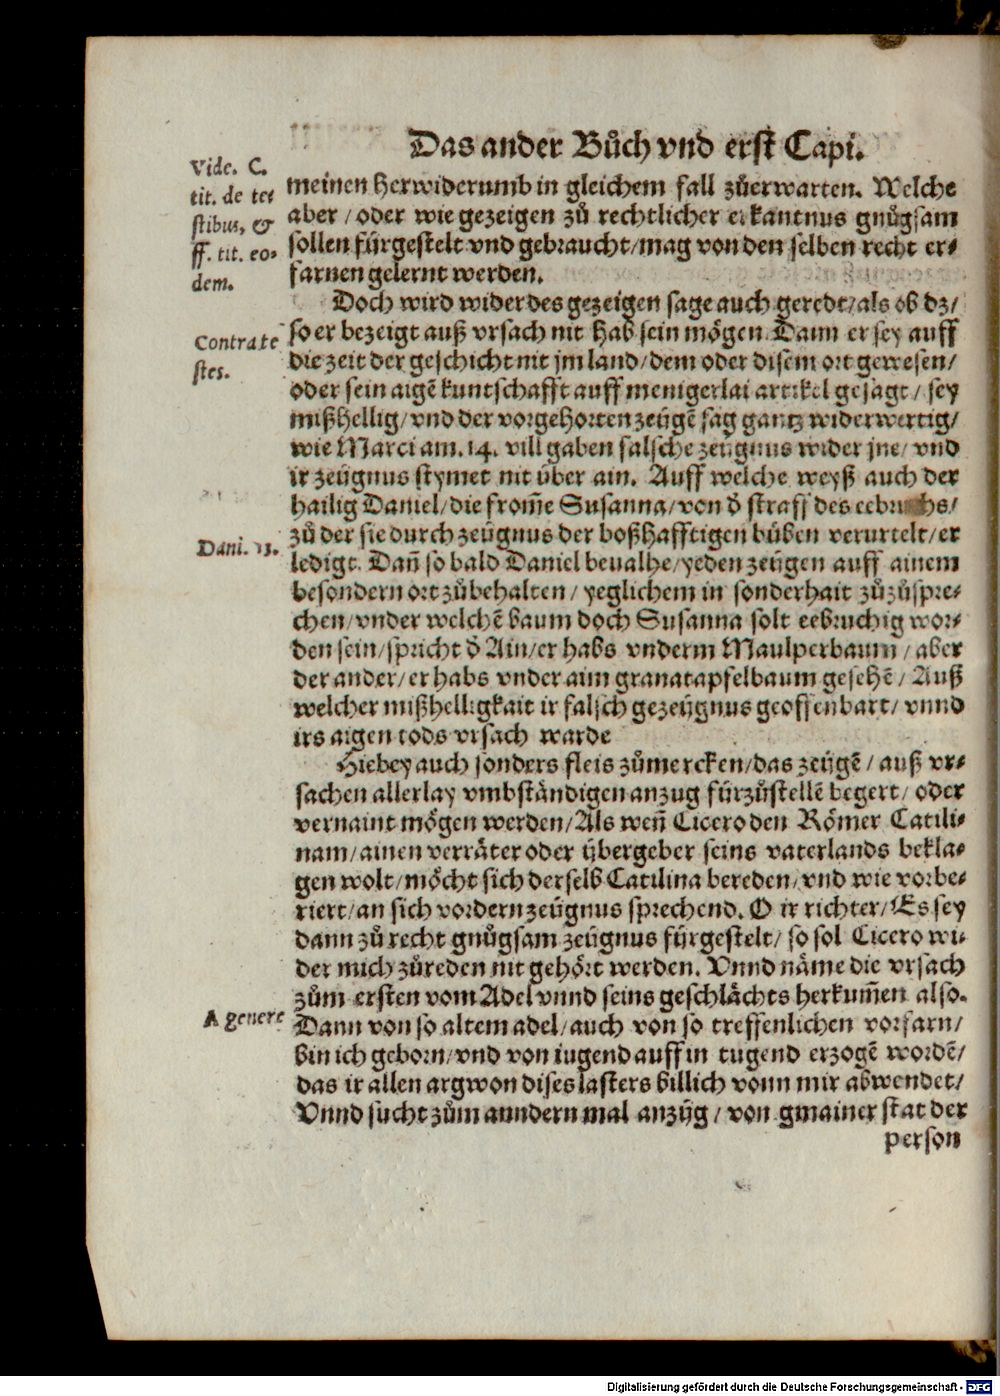 Das ander Bůch vnd erst Capi.
Vide. C.
tit. de tes
stibus, &
ff. tit. eo-
dem.
meinen herwiderumb in gleichem fall zůerwarten. Welche
aber / oder wie gezeigen zů rechtlicher erkantnus gnůgsam
sollen fürgestelt vnd gebraucht / mag von den selben recht er-
farnen gelernt werden.
Doch wird wider des gezeigen sage auch geredt / als ob dz /
Contra te
stes.
so er bezeigt auß vrsach nit hab sein mögen. Dann er sey auff
die zeit der geschicht nit jm land / dem oder disem ort gewesen /
oder sein aigē kuntschafft auff menigerlai artikel gesagt / sey
mißhellig / vnd der vorgehorten zeügē sag gantz widerwertig /
wie Marci am. 14. vill gaben falsche zeügnus wider jne / vnd
ir zeügnus stymet nit über ain. Auff welche weyß auch der
hailig Daniel / die from̄e Susanna / von d̄ straff des eebruchs /
zů der sie durch zeügnus der boßhafftigen bůben verurtelt / er
Dani. 13.
ledigt. Dan̄ so bald Daniel beualhe / yeden zeügen auff ainem
besondern ort zůbehalten / yeglichem in sonderhait zůzůspre-
chen / vnder welchē baum doch Susanna solt eebruchig wor-
den sein / spricht d̄ Ain / er habs vnderm Maulperbaum / aber
der ander / er habs vnder aim granatapfelbaum gesehē / Auß
welcher mißhelligkait ir falsch gezeügnus geoffenbart / vnnd
irs aigen tods vrsach warde
Hiebey auch sonders fleis zůmercken / das zeügē / auß vr-
sachen allerlay vmbständigen anzug fürzůstellē begert / oder
vernaint mögen werden / Als wen̄ Cicero den Römer Catili-
nam / ainen verräter oder übergeber seins vaterlands bekla-
gen wolt / möcht sich derselb Catilina bereden / vnd wie vorbe-
riert / an sich vordern zeügnus sprechend. O ir richter / Es sey
dann zů recht gnůgsam zeügnus fürgestelt / so sol Cicero wi-
der mich zůreden nit gehört werden. Vnnd näme die vrsach
zům ersten vom Adel vnnd seins geschlächts herkum̄en also.
A genere
Dann von so altem adel / auch von so treffenlichen vorfarn /
bin ich geborn / vnd von iugend auff in tugend erzogē wordē /
das ir allen argwon dises lasters billich vonn mir abwendet /
Vnnd sucht zům anndern mal anzüg / von gmainer stat der
person
Digitalisierung gefördert durch die Deutsche Forschungsgemeinschaft - DFG